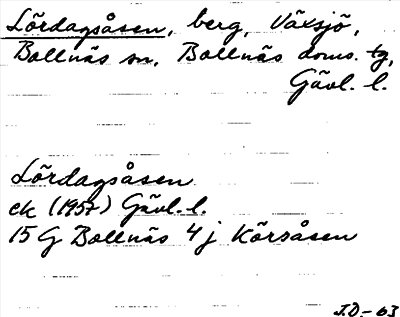 Lördagsåsen, berg, Växsjö,
Bollnäs sn, Bollnäs doms. tg,
Gävl. l.
Lördagsåsen
ek (1957) Gävl. l.
15 G Bollnäs 4 j Körsåsen
J.D.-63